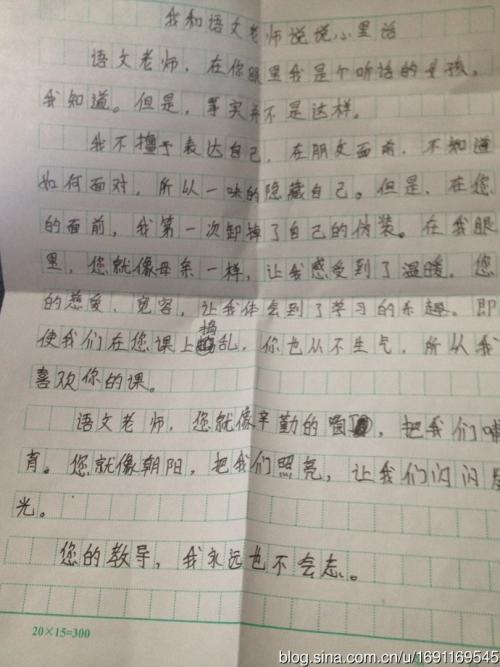 我和语文老师说说心里话
语文老师，在你眼里我是个听话的女孩，
我知道。但是，事实并不是这样。
我不擅于表达自己，在朋友面前，不知道
如何面对，所以一味的隐藏自己。但是，在您
的面前，我第一次卸掉了自己的伪装。在我眼
里，您就像母亲一样，让我感受到了温暖。您
的慈爱、宽容，让我体会到了学习的乐趣。即
使我们在您课上捣乱，你也从不生气，所以我
喜欢你的课。
语文老师，您就像辛勤的园丁，把我们哺
育。您就像朝阳，把我们照亮，让我们闪闪发
光。
您的教导，我永远也不会忘。
20×15=300
blog.sina.com.cn/u/1691169545